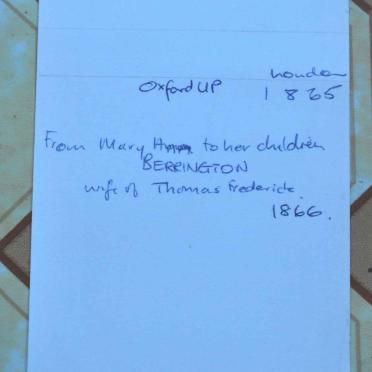 London
Oxford UP 1865
From Mary to her children
BERRINGTON
wife of Thomas Frederick
1866.